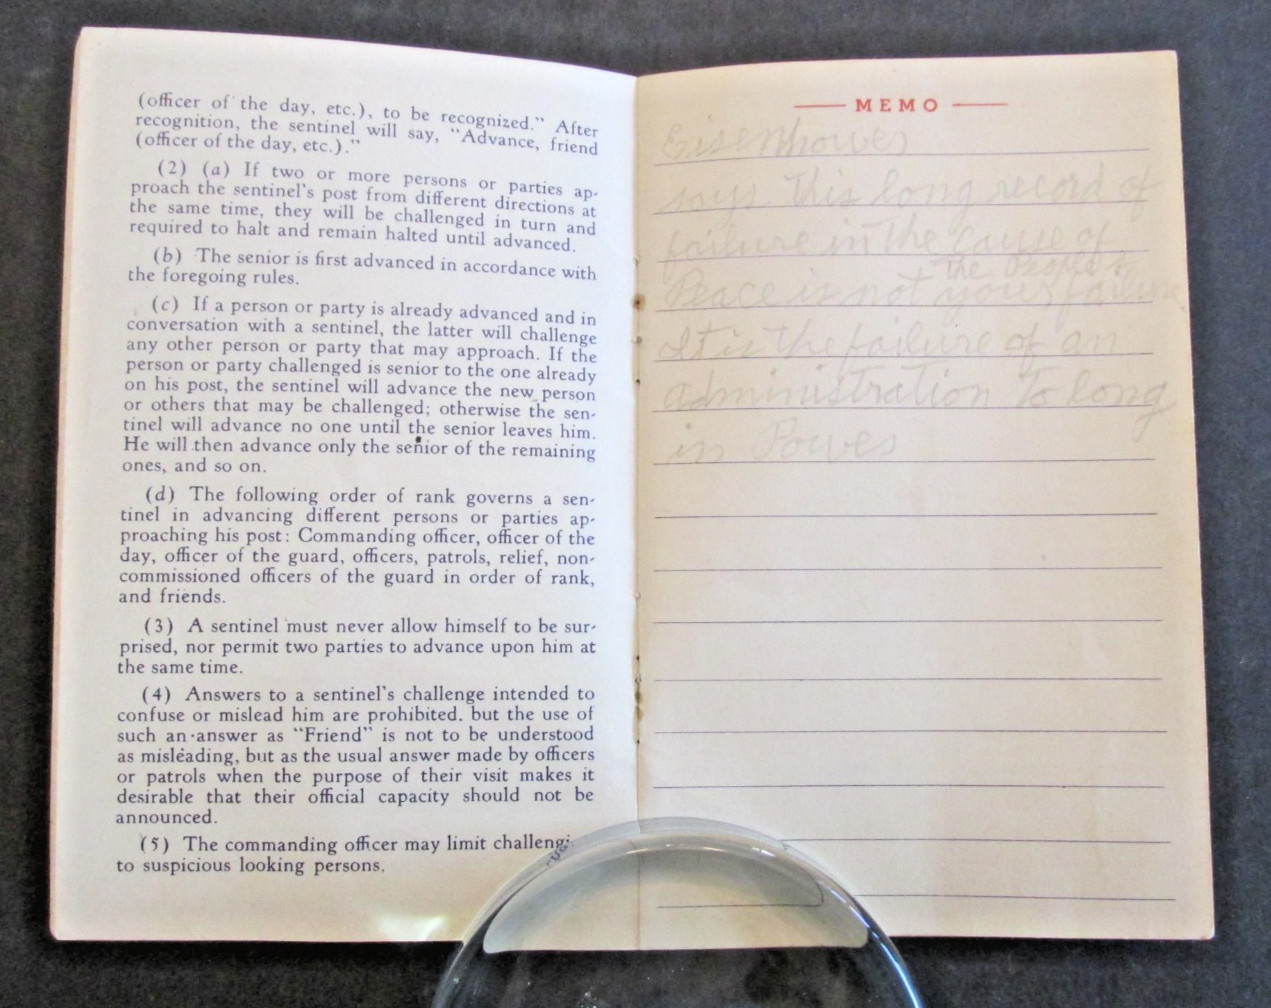 (officer of the day, etc.), to be recognized." After
recognition, the sentinel will say, "Advance, friend
(officer of the day, etc.)."
(2) (a) If two or more persons or parties ap-
proach the sentinel's post from different directions at
the same time, they will be challenged in turn and
required to halt and remain halted until advanced.
(b) The senior is first advanced in accordance with
the foregoing rules.
(c) If a person or party is already advanced and in
conversation with a sentinel, the latter will challenge
any other person or party that may approach. If the
person or party challenged is senior to the one already
on his post, the sentinel will advance the new person
or others that may be challenged; otherwise the sen-
tinel will advance no one until the senior leaves him.
He will then advance only the senior of the remaining
ones, and so on.
(d) The following order of rank governs a sen-
tinel in advancing different persons or parties ap-
proaching his post: Commanding officer, officer of the
day, officer of the guard, officers, patrols, relief, non-
commissioned officers of the guard in order of rank,
and friends.
(3) A sentinel must never allow himself to be sur-
prised, nor permit two parties to advance upon him at
the same time.
(4) Answers to a sentinel's challenge intended to
confuse or mislead him are prohibited. but the use of
such an answer as "Friend" is not to be understood
as misleading, but as the usual answer made by officers
or patrols when the purpose of their visit makes it
desirable that their official capacity should not be
announced.
(5) The commanding officer may limit challengi
to suspicious looking persons.
MEMO
Eisenhower
says this long record of
failure in the cause of
the People
Peace is not your failure
It is the failure of an
administration To long
in Power